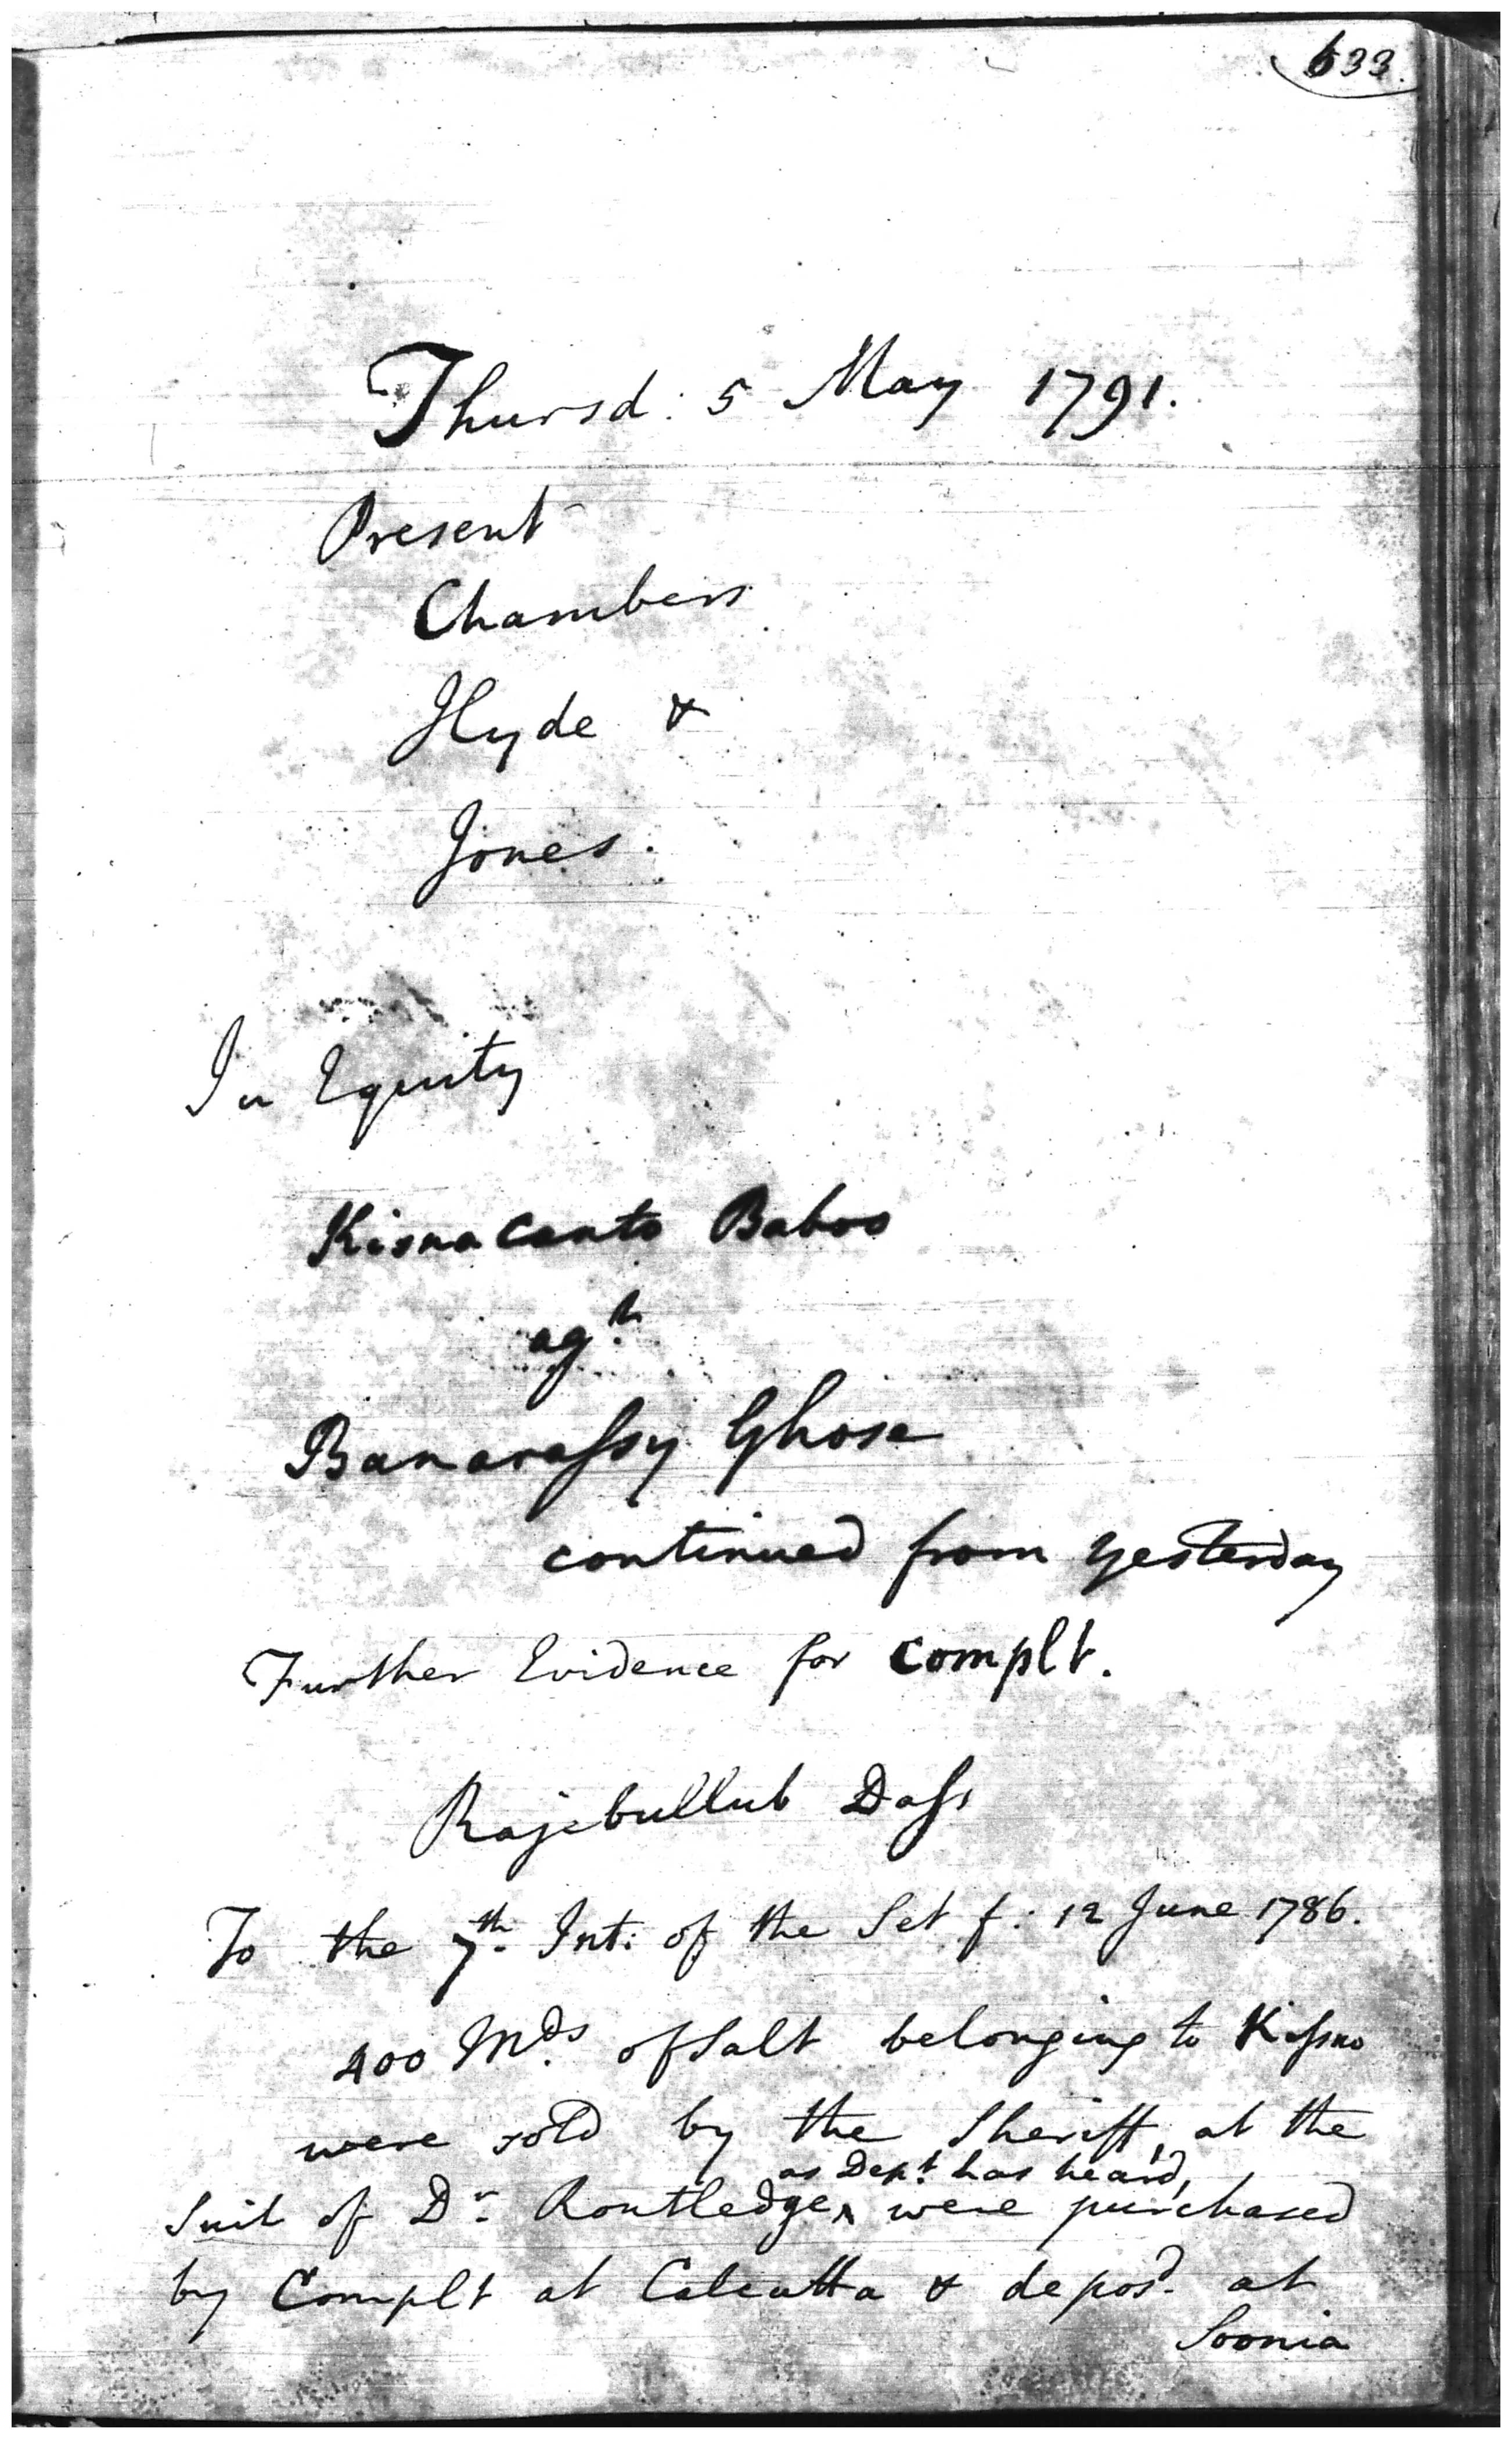 633.
Thursd: 5 May 1791.
Present
Chambers
Hyde &
Jones.
In Equity
Kisnacanto Baboo
agt
Banarassy Ghose
continued from yesterday
Further Evidence for Complt.
Rajebullub Dass
To the 7th Int: of the Set f: 12 June 1786.
400 Mds of Salt belonging to Kissno
were sold by the Sheriff, at the
as Dept has heard,
Suit of Dr Routledge ^ were purchased
by Complt at Calcutta & deposd at
Soonia